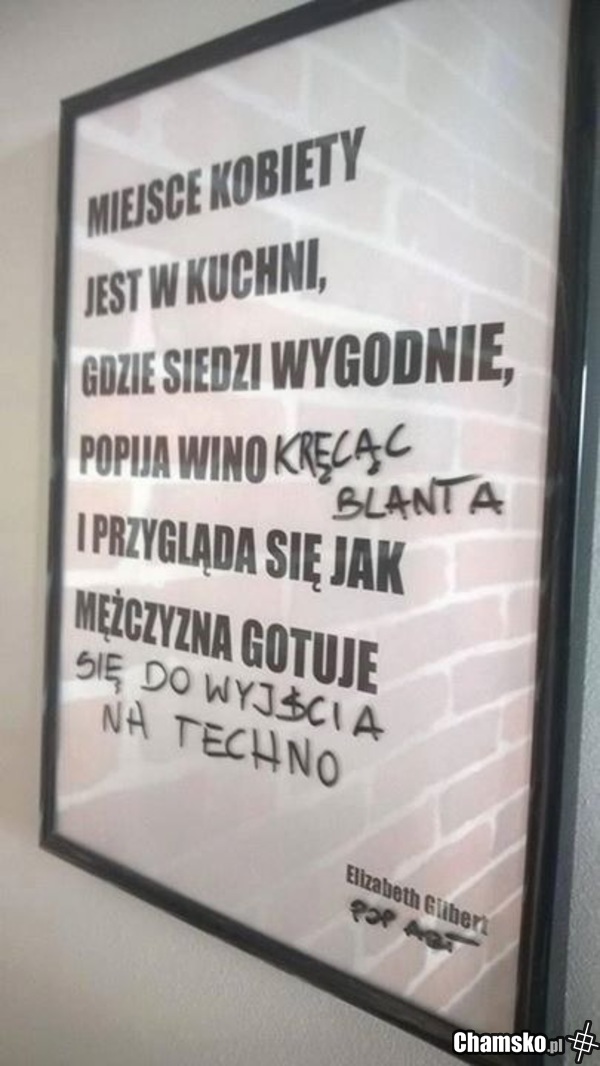 MIEJSCE KOBIETY
JEST W KUCHNI,
GDZIE SIEDZI WYGODNIE,
POPIJA WINO KRĘCĄC
BLANTA
I PRZYGLĄDA SIĘ JAK
MĘŻCZYZNA GOTUJE
SIĘ DO WYJŚCIA
NA TECHNO
Elizabeth Gilbert
POP ART
Chamsko.pl